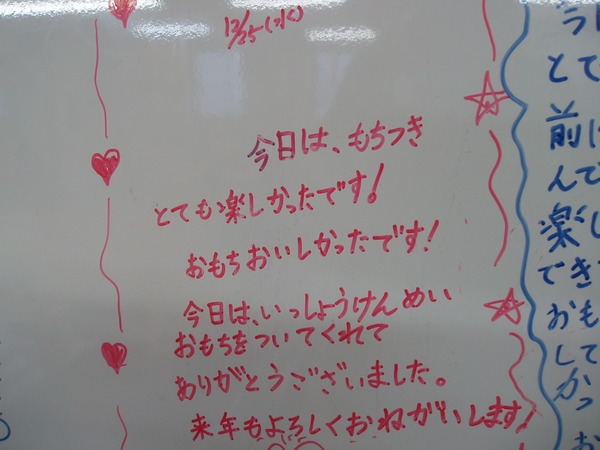 12/25(水)
今日は、もちつき
とても楽しかったです!
おもちおいしかったです!
今日は、いっしょうけんめい
おもちをついてくれて
ありがとうございました。
来年もよろしくおねがいします!
今
とて
前に
んで
楽し
でき
おも
して
かっ
お